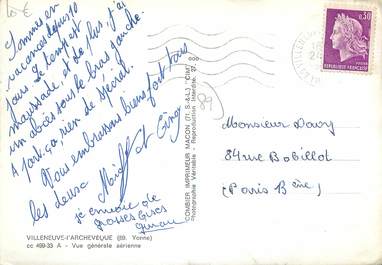 10€
Sommes en
vacances depuis 10
jours. Le temps est
maussade, et de plus, j'ai
un abcès sous le bras gauche.
A part ça, rien de spécial.
Vous embrassons bien fort tous
les deux
et
je envoie de
grosses bises
VILLENEUVE-l'ARCHEVEQUE (89. Yonne)
cc 499-33 A - Vue générale aérienne
COMBIER IMPRIMEUR MACON (71. S.-&-L.) "CIM"
Photographie Véritable - Reproduction Interdite
89
0,30
Monsieur
84 rue Bobillot
(Paris 13ème)